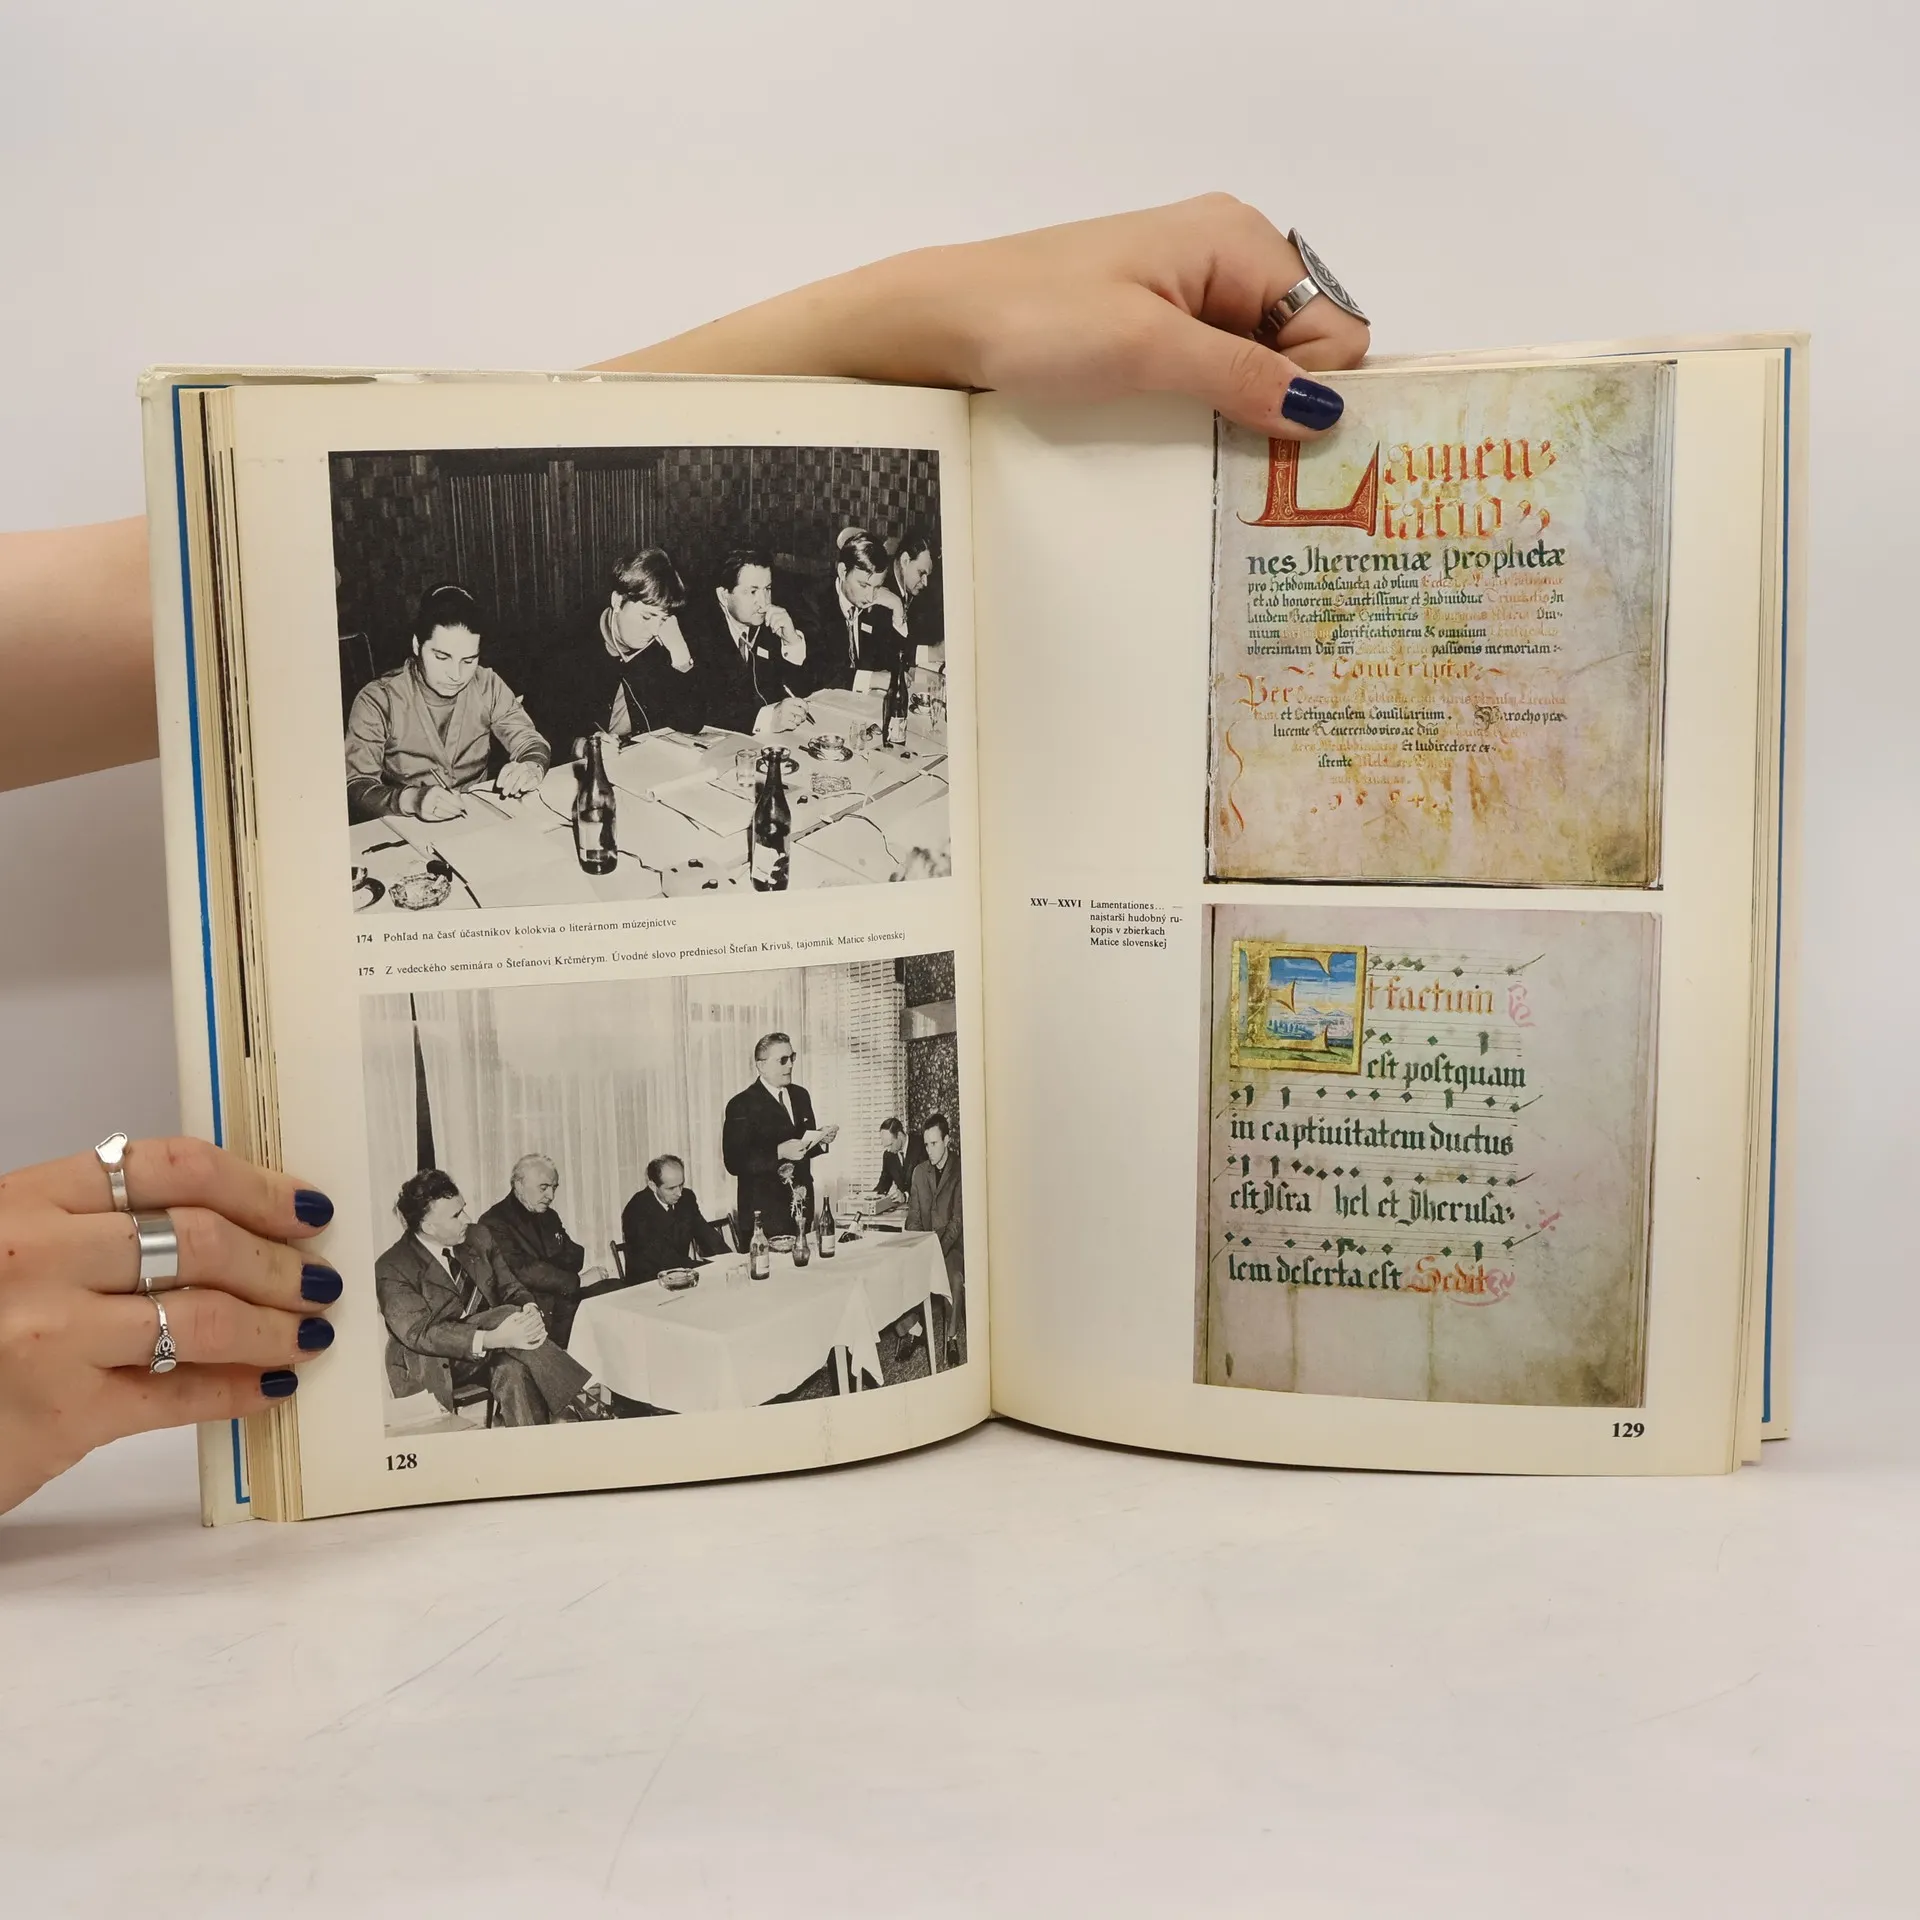 174 Pohľad na časť účastníkov kolokvia o literárnom múzejníctve
175 Z vedeckého seminára o Štefanovi Krčmérym. Úvodné slovo predniesol Štefan Krivuš, tajomník Matice slovenskej
128
Lamen-
tatio-
nes Jheremiæ prophetæ
pro Hebdomada sancta ad vsum
et ad honorem Sanctissimæ et Indiuiduæ In
laudem Beatissimæ Genitricis
nium glorificationem & omnium
vberrimam passionis memoriam:
Conscriptæ
Per
et Consiliarium. Parocho
lucente Reuerendo viro ac Dño
Et ludirectore ex-
istente
XXV—XXVI Lamentationes... —
najstarší hudobný ru-
kopis v zbierkach
Matice slovenskej
Et factum
est postquam
in captiuitatem ductus
est Jsra hel et Jherusa-
lem deserta est Sedit
129